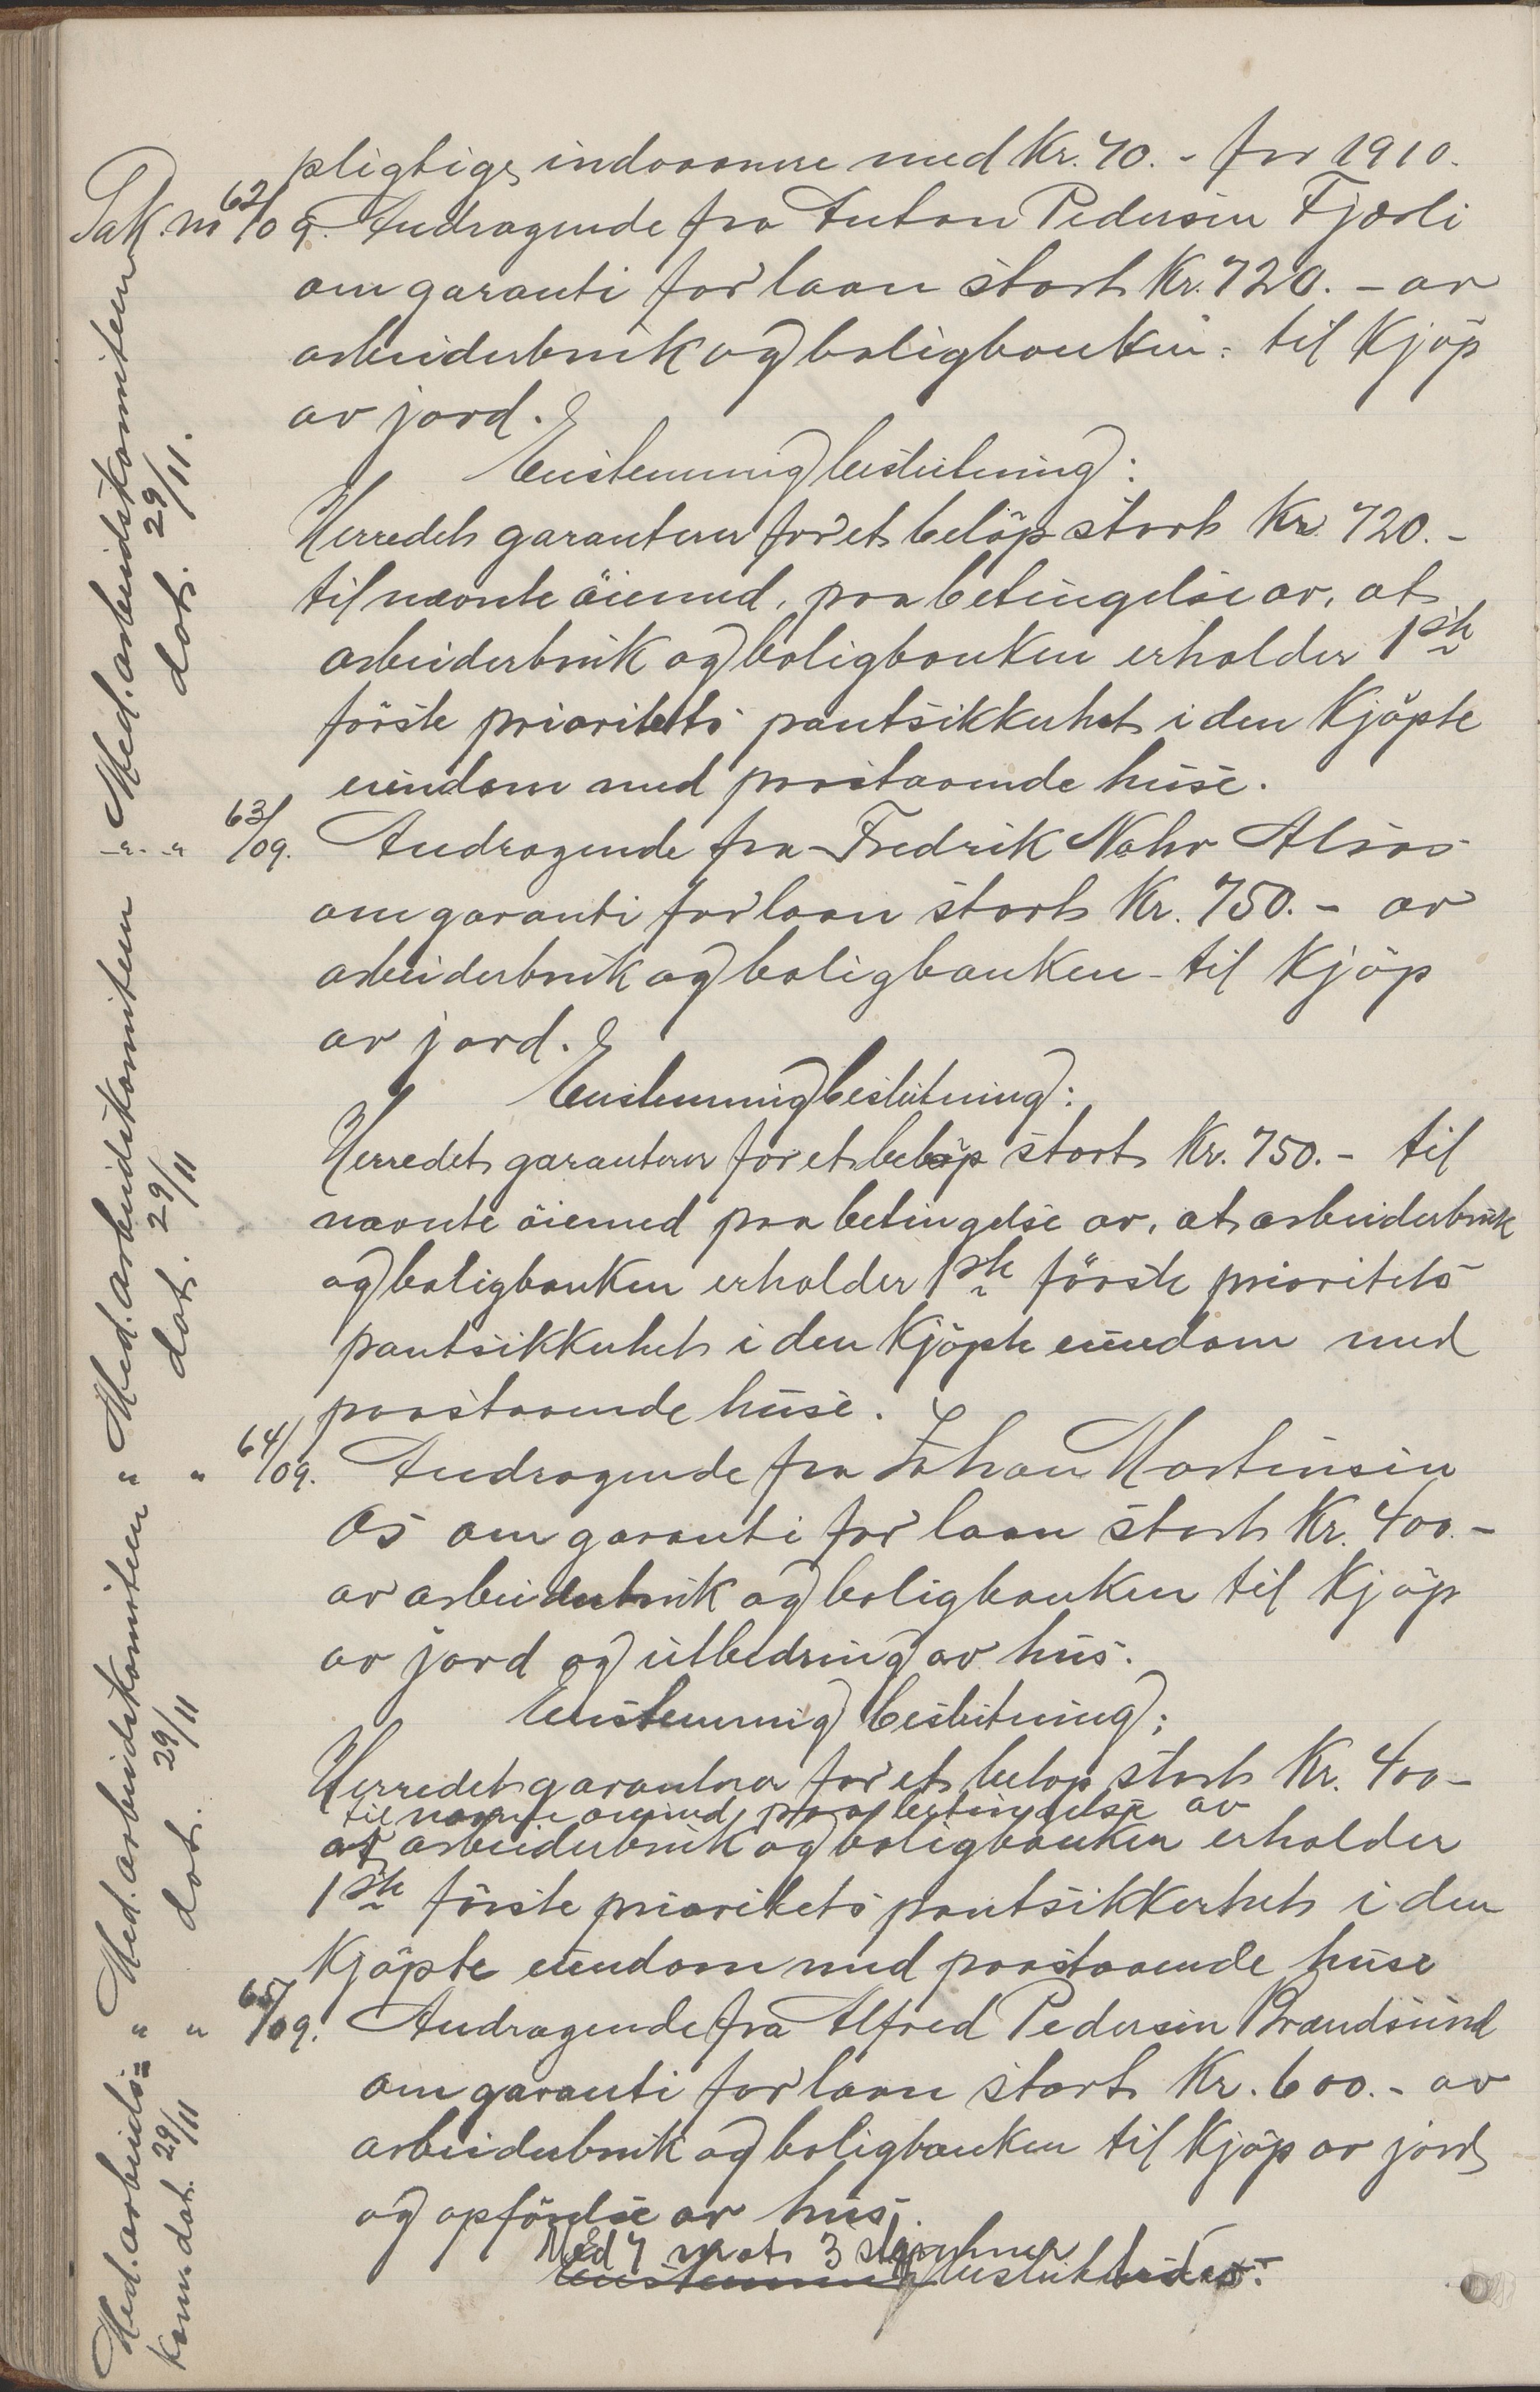 pligtige indvaanere med Kr. 70.- for 1910.
Sak. nr 62/09. Andragende fra Anton Pedersen Fjærli
om garanti for laan stort Kr. 720.- av
arbeiderbruk og boligbanken - til Kjöp
av jord.
Enstemmig beslutning:
Herredet garanterer for et belöp stort Kr. 720.-
til nævnte öiemed, paa betingelse av, at
arbeiderbruk og boligbanken erholder 1ste
förste prioritets pantsikkerhet i den Kjöpte
eiendom med paastaaende huse.
" " 63/09. Andragende fra Fredrik Nohr Alsos
om garanti for laan stort Kr. 750.- av
arbeiderbruk og boligbanken - til Kjöp
av jord.
Enstemmig beslutning:
Herredet garanterer for et belöp stort Kr. 750.- til
nævnte öiemed paa betingelse av, at arbeiderbruk
og boligbanken erholder 1ste förste prioritets
pantsikkerhet i den Kjöpte eiendom med
paastaaende huse.
" " 64/09. Andragende fra Johan Martinsen
Os om garanti for laan stort Kr. 400.-
av arbeiderbruk og boligbanken til Kjöp
av jord og utbedring av hus.
Enstemmig beslutning;
Herredet garanterer for et belop stort Kr. 400-
til nævnte öiemed, paa betingelse av
at arbeiderbruk og boligbanken erholder
1ste förste prioritets pantsikkerhet i den
Kjöpte eiendom med paastaaende huse
" " 65/09. Andragende fra Alfred Pedersen Brandsund
om garanti for laan stort Kr. 600.- av
arbeiderbruk og boligbanken til Kjöp av jord
og opförelse av hus.
Med 7 mot 3 stemmer
Enstemmig besluttedes:
Med. arbeidskomiteen
dat. 29/11.
Med. arbeidskomiteen
dat. 29/11
Med. arbeidskomiteen
dat. 29/11
Med. arbeids=
kom. dat. 29/11